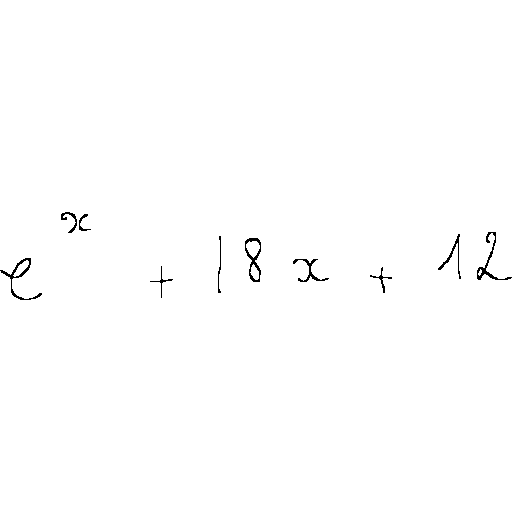 e^x + 18x + 12